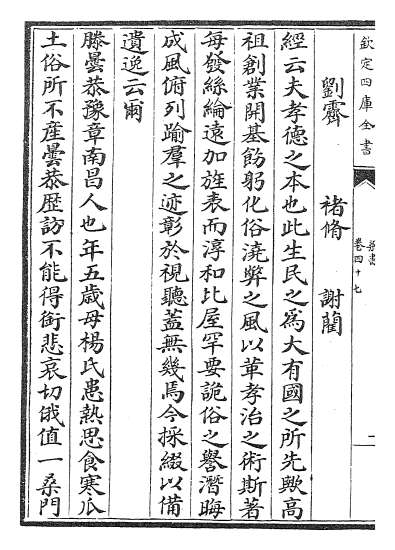 欽定四庫全書
梁書
卷四十七
二
劉霽
褚脩
謝藺
經云夫孝德之本也此生民之為大有國之所先歟高
祖創業開基飭躬化俗澆弊之風以革孝治之術斯著
每發絲綸遠加旌表而淳和比屋罕要詭俗之譽潛晦
成風俯列踰羣之迹彰於視聽蓋無幾焉今採綴以備
遺逸云爾
滕曇恭豫章南昌人也年五歲母楊氏患熱思食寒瓜
土俗所不産曇恭歷訪不能得銜悲哀切俄值一桑門